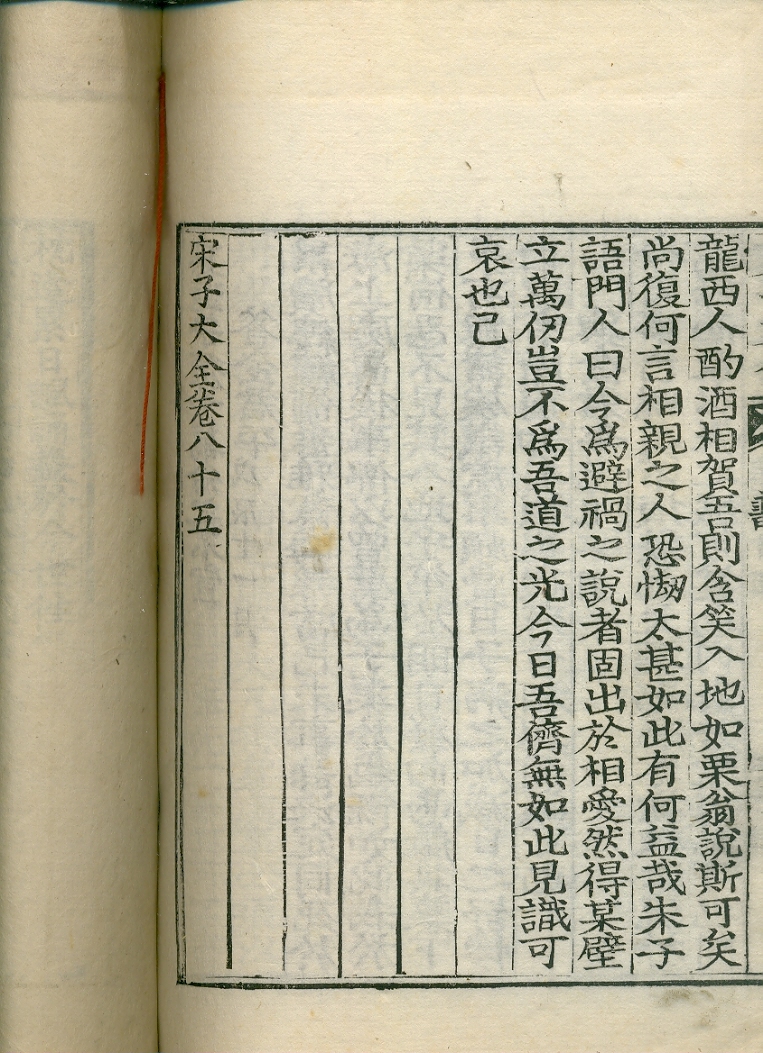 龍西人酌酒相賀吾則含笑入地如栗翁說斯可矣
尚復何言相親之人恐㤼太甚如此有何益哉朱子
語門人曰今爲避禍之說者固出於相愛然得某壁
立萬仞豈不爲吾道之光今日吾儕無如此見識可
哀也已
宋子大全卷八十五